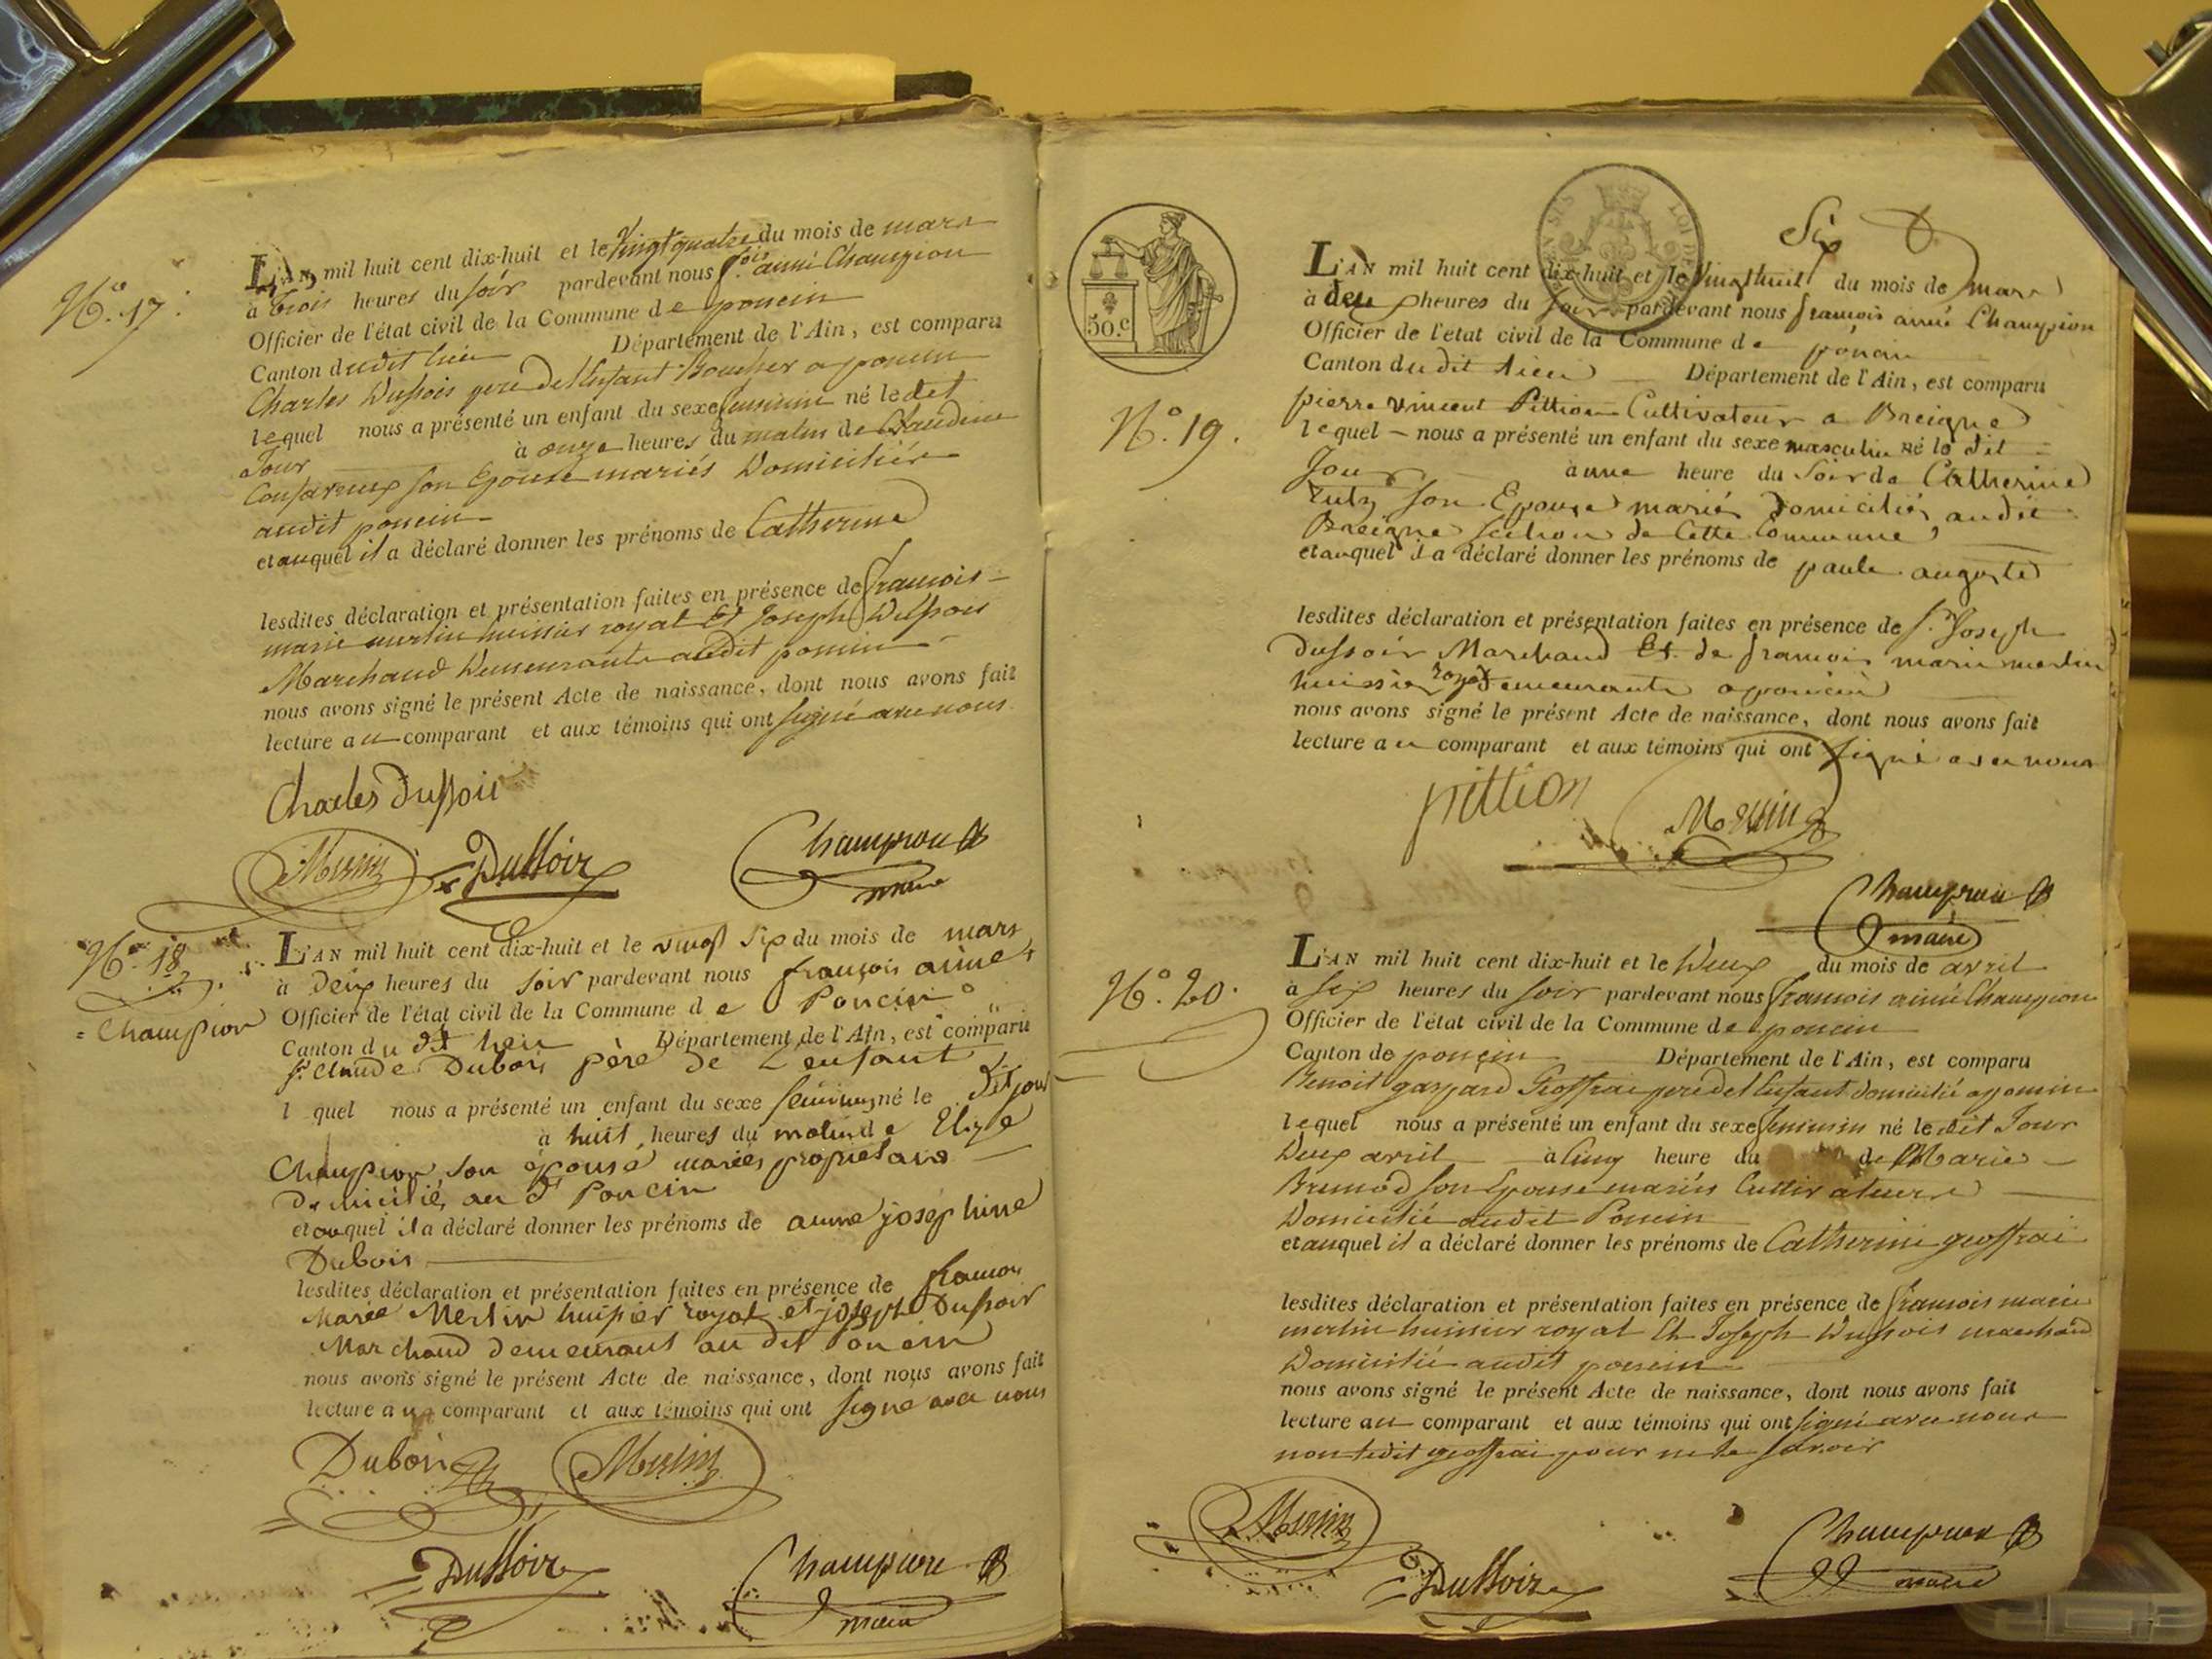 N.° 17.
L'AN mil huit cent dix-huit et le Vingt quatre du mois de mars
à trois heures du soir pardevant nous f.ois aimé Champion
Officier de l'état civil de la Commune de poncin
Canton dudit lieu Département de l'Ain, est comparu
Charles Dussois pere de l'Enfant Boucher a poncin
lequel nous a présenté un enfant du sexe feminin né le dit
Jour à onze heures du matin de Claudine
son Epouse mariés Domiciliés
audit poncin
et auquel il a déclaré donner les prénoms de Catherine
lesdites déclaration et présentation faites en présence de francois
marie merlin huissier royal Et Joseph Dussois
Marchand Demeurants audit poncin
nous avons signé le présent Acte de naissance, dont nous avons fait
lecture au comparant et aux témoins qui ont signé avec nous
Charles Dussois
Merlin Dussoir Champion
maire
N.° 18
Champion
L'AN mil huit cent dix-huit et le vingt six du mois de mars
à Deux heures du soir pardevant nous françois aimé
Officier de l'état civil de la Commune de Poncin
Canton du dit lieu Département de l'Ain, est comparu
s.r Claude Dubois père de L'enfant
l quel nous a présenté un enfant du sexe féminin né le Dit jour
à huit heures du matin de Elize
Champion son épouse mariés propriétaires
Domiciliés au dt Poncin
et auquel il a déclaré donner les prénoms de anne joséphine
Dubois
lesdites déclaration et présentation faites en présence de francois
Marie Merlin huissier royal et joseph Dussoir
Marchand demeurant au dit Poncin
nous avons signé le présent Acte de naissance, dont nous avons fait
lecture au comparant et aux témoins qui ont signé avec nous
Dubois Merlin
Dussoir Champion
maire
Six
50.c
N.° 19.
L'AN mil huit cent dix-huit et le Vingt huit du mois de mars
à deux heures du soir pardevant nous françois aimé Champion
Officier de l'etat civil de la Commune de poncin
Canton dudit lieu Département de l'Ain, est comparu
pierre vincent Pittion Cultivateur a Breigne
lequel nous a présenté un enfant du sexe masculin né le dit
Jour à une heure du soir de Catherine
son Epouse mariés Domiciliés audit
Breigne section de Cette Commune,
et auquel il a déclaré donner les prénoms de paule auguste
lesdites déclaration et présentation faites en présence de s.r Joseph
Dussoir Marchand Et de francois marie merlin
huissier royal Demeurants a poncin
nous avons signé le présent Acte de naissance, dont nous avons fait
lecture au comparant et aux témoins qui ont signé avec nous
pittion
Merlin
Champion
maire
N.° 20.
L'AN mil huit cent dix-huit et le Deux du mois de avril
à six heures du soir pardevant nous francois aimé Champion
Officier de l'état civil de la Commune de poncin
Canton de poncin Département de l'Ain, est comparu
Benoit gaspard Geoffrai pere de l'Enfant domicilié a poncin
lequel nous a présenté un enfant du sexe feminin né le dit Jour
Deux avril à Cinq heure du de Marie
Brunod son Epouse mariés Cultivateurs
Domicilié audit Poncin
et auquel il a déclaré donner les prénoms de Catherine geoffrai
lesdites déclaration et présentation faites en présence de francois marie
merlin huissier royal Et Joseph Dussois marchand
Domicilié audit poncin
nous avons signé le présent Acte de naissance, dont nous avons fait
lecture au comparant et aux témoins qui ont signé avec nous
non ledit geoffrai pour ne le savoir
Merlin
Dussoir
Champion
maire